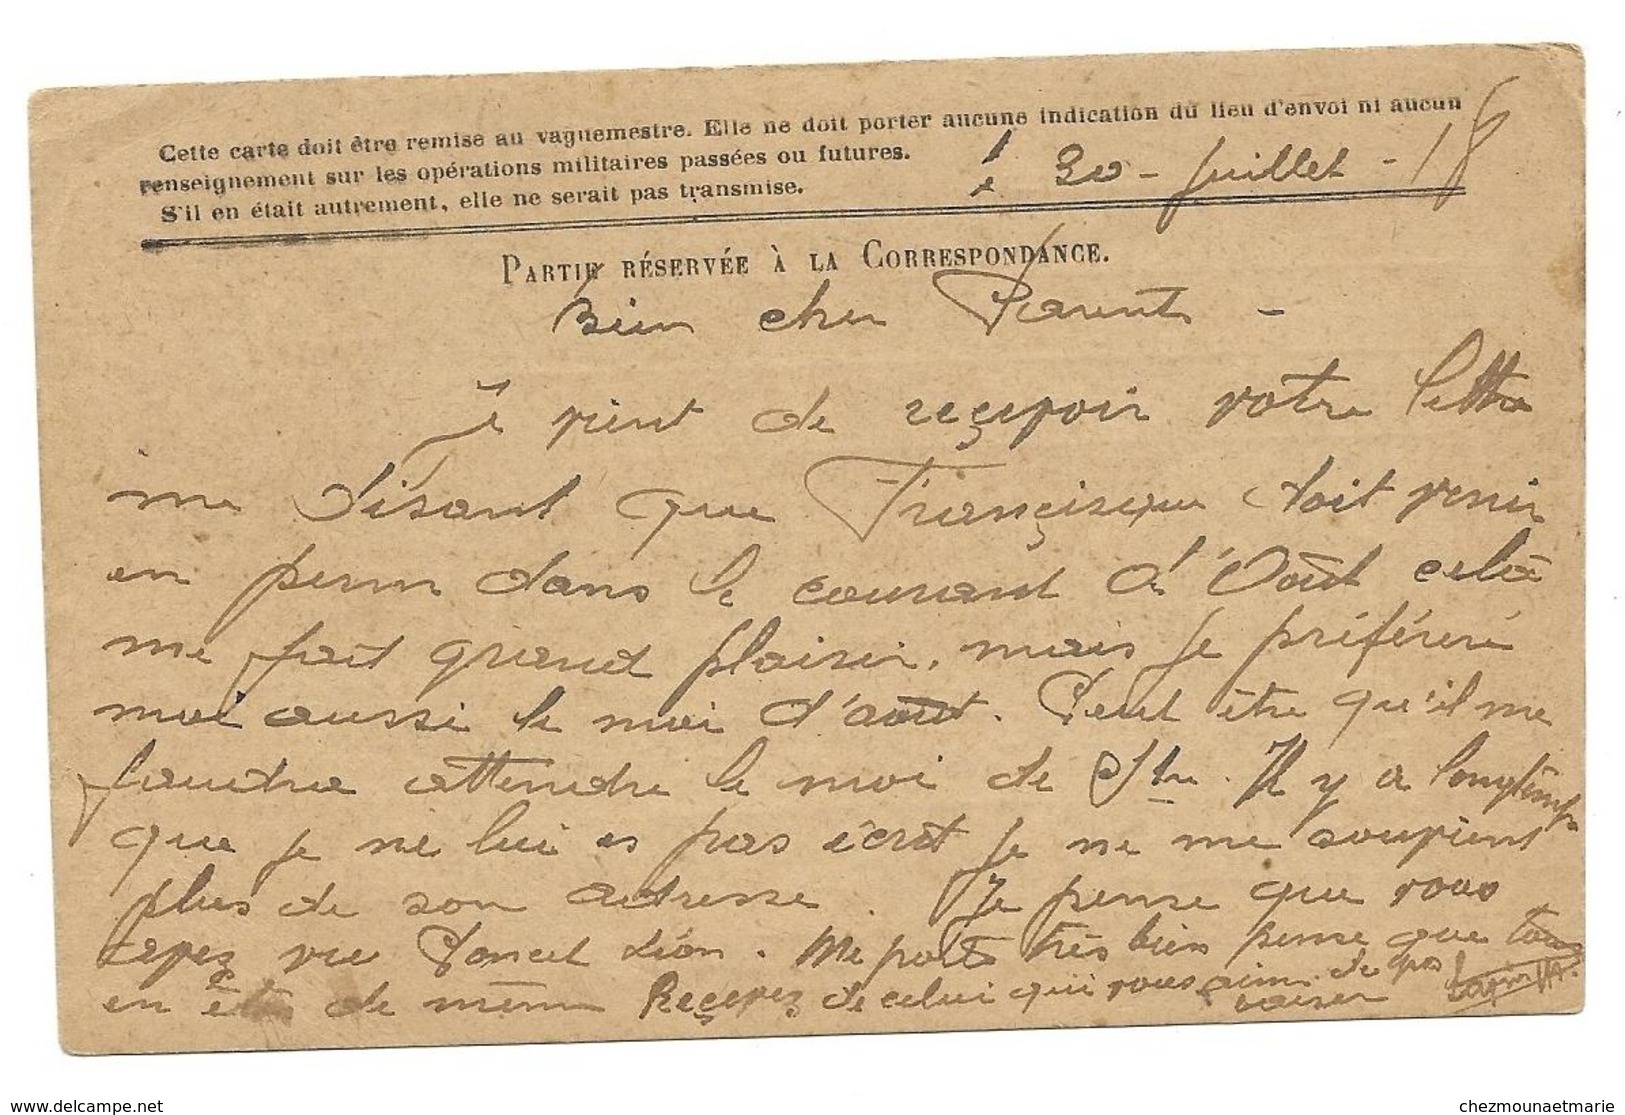 Cette carte doit être remise au vaguemestre. Elle ne doit porter aucune indication du lieu d'envoi ni aucun
renseignement sur les opérations militaires passées ou futures.
S'il en était autrement, elle ne serait pas transmise.
30 - Juillet - 18
PARTIE RÉSERVÉE À LA CORRESPONDANCE.
Bien cher Parents -
Je vient de reçevoir votre lettre
me disant que Françisque doit venir
en perm dans le courant d'Août celà
me fait grand plaisir, mais je préféreré
moi aussi le moi d'août. Peut être qu'il me
faudra attendre le moi de Sbre. Il y a longtemps
que je ne lui es pas écrit je ne me souvient
plus de son adresse. Je pense que vous
avez vu Poncet Léon. Me porte très bien pense que tous
en êtes de même Reçevez de celui qui vous aime de gros
baiser
www.delcampe.net
chezmounaetmarie